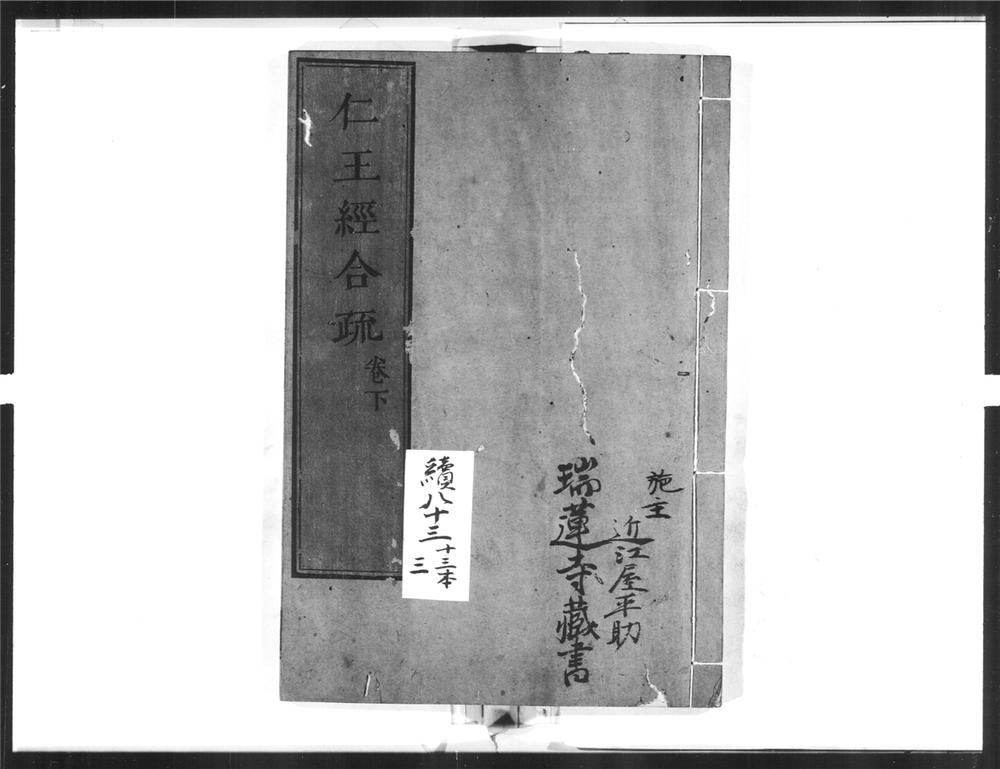 施主
近江屋平助
瑞蓮寺藏書
仁王經合疏
卷下
續八十三
十三本
三